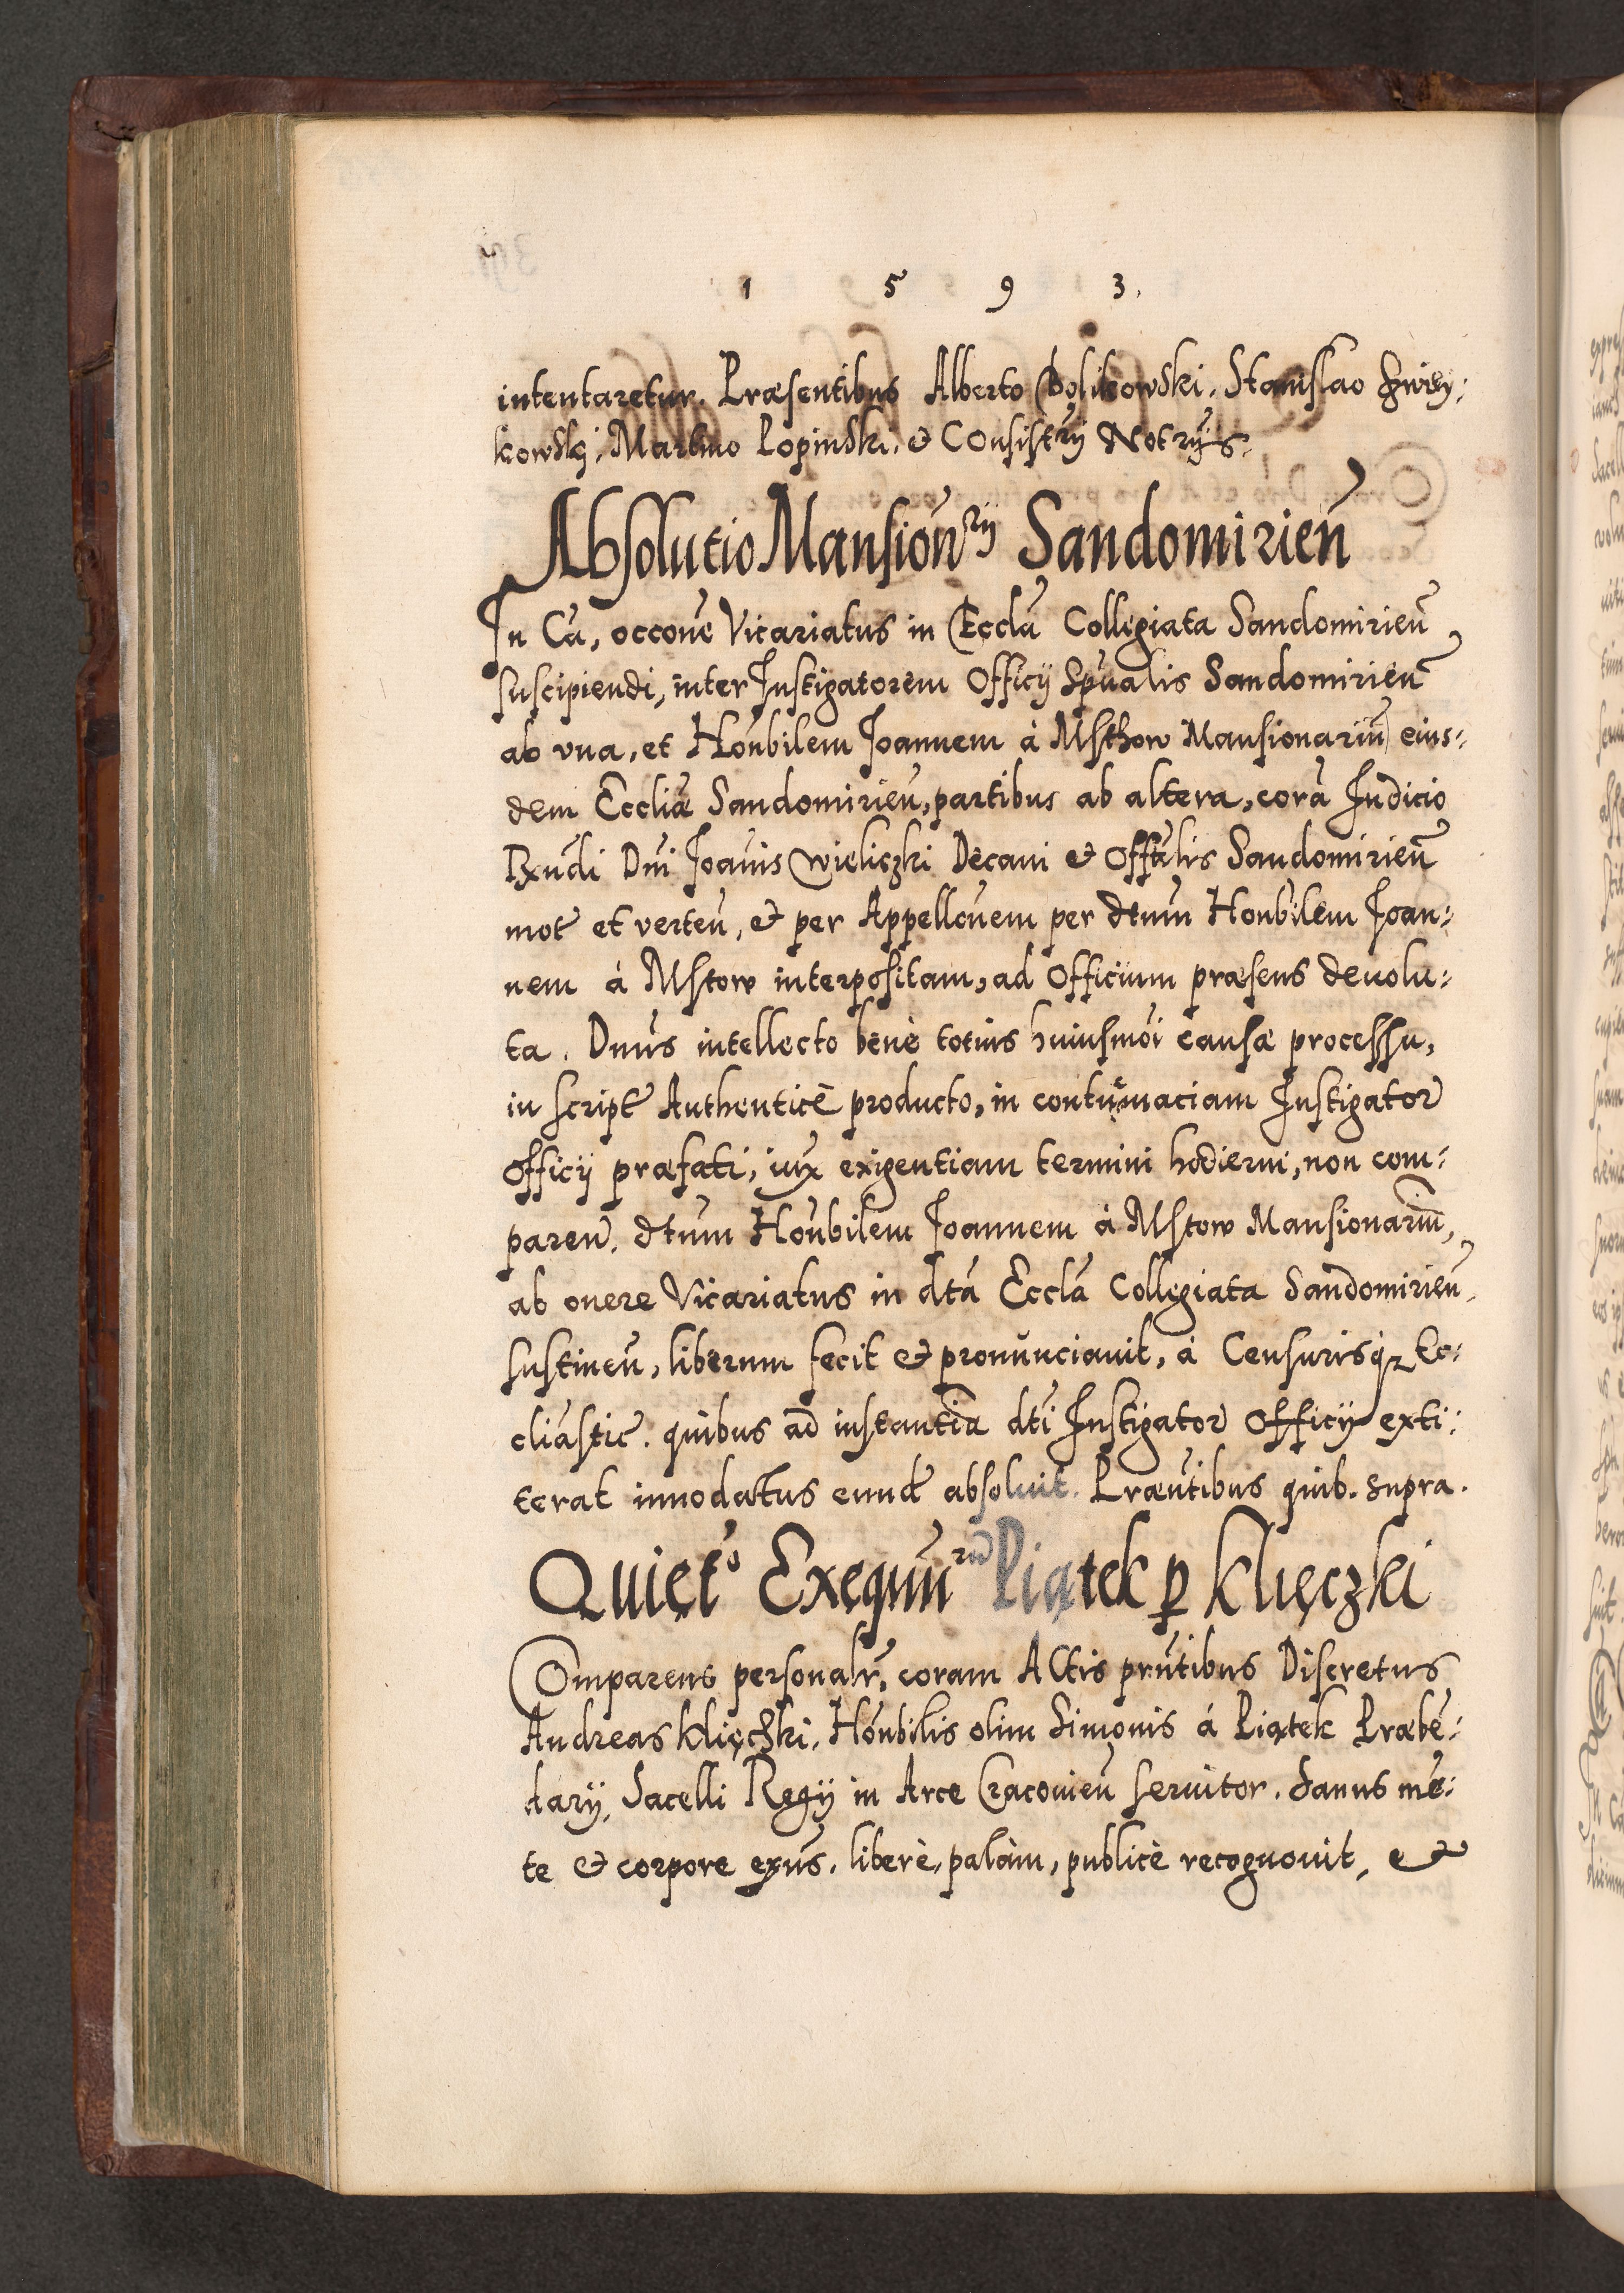 1 5 9 3.
intentaretur. Præsentibus Alberto Bolikowski. Stanislao
kowski, Martino Lopinski. et Consistrij Notrijs.
Absolutio Mansionrij Sandomirien̄
In Cā, occōne Vicariatus in Ecclā Collegiata Sandomirien̄
suscipiendi, inter Instigatorem Officij Spūalis Sandomirien̄
ab vna, et Honb̄ilem Joannem à Msthow Mansionariū eius⸗
dem Eccliæ Sandomirien̄, partibus ab altera, corā Judicio
Rx̄ndi Dnī Joānis Wieliczki Decani et Offālis Sandomirien̄
mot̄ et verten̄, et per Appellōnem per dtum̄ Honb̄ilem Joan⸗
nem à Mstow interpositam, ad Officium præsens deuolu⸗
ta. Dnūs intellecto benè totius huiusmōi causæ processu,
in script̄ Authenticè producto, in contumaciam Instigator̄
Officij præfati, iux̄ exigentiam termini hodierni, non com⸗
paren̄. dtum̄ Honb̄ilem Joannem à Mstow Mansionariū,
ab onere Vicariatus in dtā Ecclā Collegiata Sandomirien̄
sustinen̄, liberum fecit et pronunciauit, à Censurisqꝫ Ec⸗
cliāstic̄. quibus ad instantiā dtī Instigator̄ Officij exti⸗
terat innodatus eund̄ absoluit. Præn̄tibus quib. supra.
Quiet̄o Exequūrū Piątek ꝑ Klięczki
Comparens personalr̄, coram Actis prn̄tibus Discretus
Andreas Klięczki, Honb̄ilis olim Simonis á Piątek Præbē⸗
darij, Sacelli Regij in Arce Cracouien̄ seruitor. Sanus mē⸗
te et corpore exn̄s. liberè, palàm, publicè recognouit, et